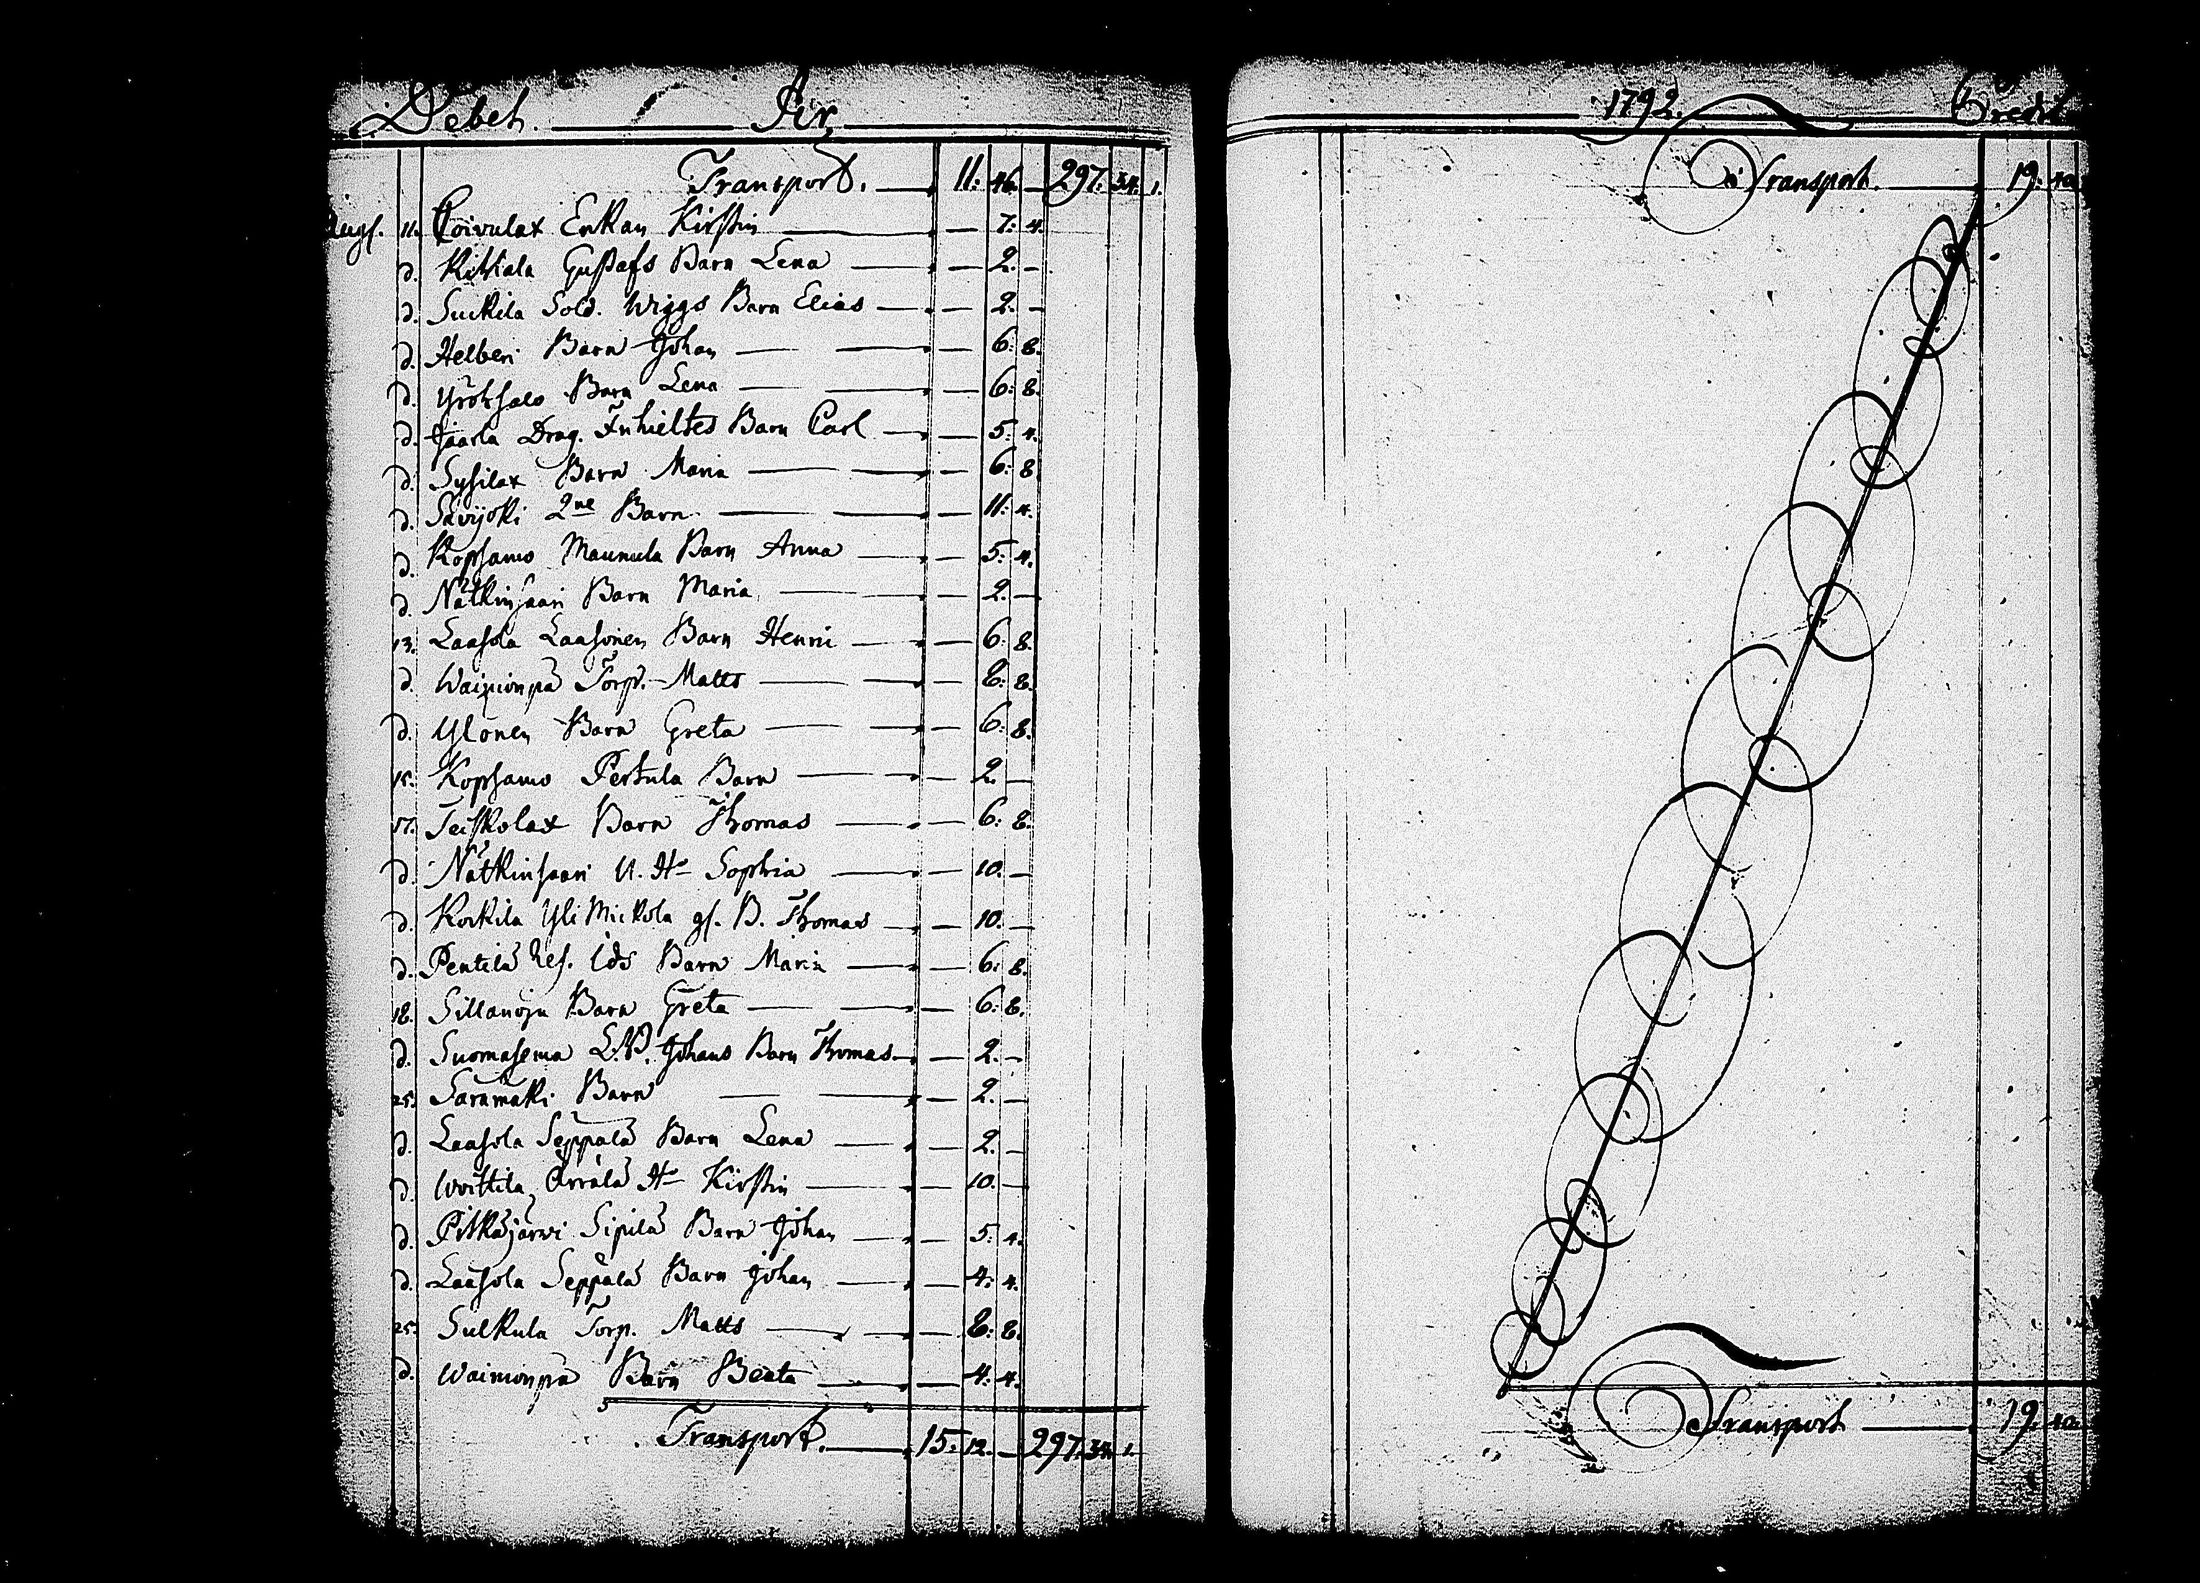 Debet. År
Transport. 11: 46. — 297: 34: 1.
Aug. 11. Coivulax Enkan Kirstin — 7: 4.
d. Kittiala Gustafs Barn Lena — 2. —
d. Suckila Sold. Wiggs Barn Elias — 2. —
d. Helberi Barn Johan — 6: 8.
d. Yröhsalo Barn Lena — 6: 8.
d. Jaarla Drag. Barn Carl — 5: 4.
d. Sysilax Barn Maria — 6: 8.
d. Savijoki 2ne Barn — 11: 4.
d. Kopsamo Maunula Barn Anna — 5: 4.
d. Nätkinsaari Barn Maria — 2. —
13. Laasola Laasonen Barn Henric — 6: 8.
d. Waimionpä Torp. Matts — 8: 8.
d. Ylönen Barn Greta — 6: 8.
15. Kopsamo Pertula Barn — 2. —
17. Teiskolax Barn Thomas — 6: 8.
d. Nätkinsaari U. H— Sophia — 10. —
d. Korkila Yli Mickola gf. B. Thomas — 10. —
d. Pentilä Ref. Barn Maria — 6: 8.
18. Sillanoja Barn Greta — 6: 8.
d. Suomasema Johans Barn Thomas — 2. —
25. Saramäki Barn — 2. —
d. Laasola Seppälä Barn Lena — 2. —
d. Woittila Orrälä H— Kirstin — 10. —
d. Pitkäjärwi Sipilä Barn Johan — 5: 4.
d. Laasola Seppälä Barn Johan — 4: 4.
25. Sulkula Torp. Matts — 8: 8.
d. Waimionpä Barn Beata — 4: 4.
Transport. 15: 12. — 297: 34: 1.
1792. Credit
Transport. 19: 40
Transport 19: 40